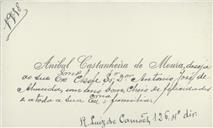 1918
Anibal Castanheira de Moura, deseja
ao seu Ex.mo Chefe Sr. Dr. António José de
Almeida, um ano bom, cheio de felicidades
e a toda a sua Ex.ma
R. Luiz de Camões, 126, 1º dir.